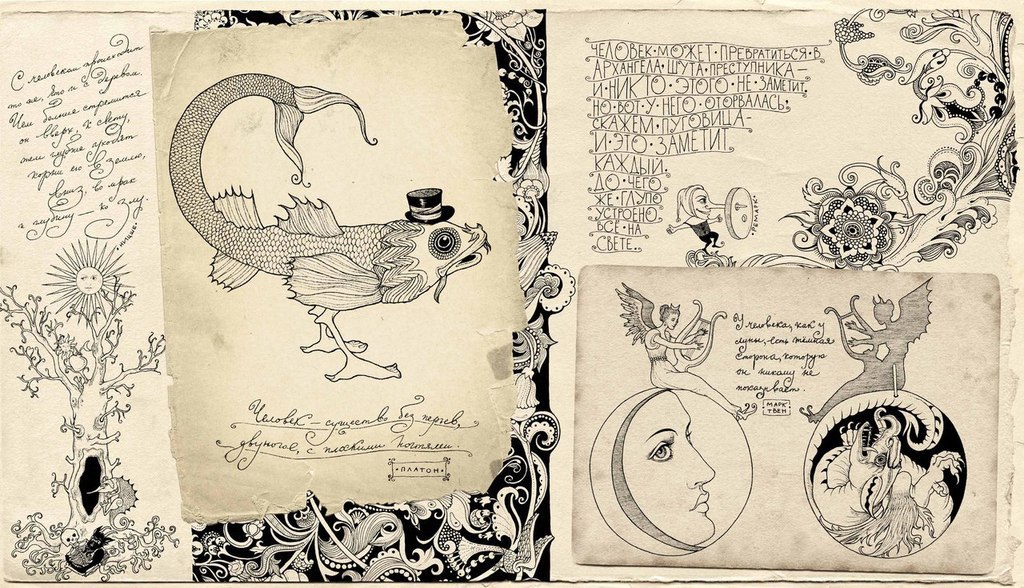 С человеком происходит
то же, что и с деревом.
Чем больше стремится
он вверх, к свету,
тем глубже уходят
корни его в землю,
вниз, во мрак
и глубину — ко злу.
• НИЦШЕ •
Человек — существо без перьев,
двуногое, с плоскими ногтями.
• ПЛАТОН •
ЧЕЛОВЕК • МОЖЕТ • ПРЕВРАТИТЬСЯ • В
АРХАНГЕЛА • ШУТА • ПРЕСТУПНИКА —
И • НИКТО • ЭТОГО • НЕ • ЗАМЕТИТ.
НО • ВОТ • У • НЕГО • ОТОРВАЛАСЬ,
СКАЖЕМ, ПУГОВИЦА —
И • ЭТО • ЗАМЕТИТ
КАЖДЫЙ.
ДО • ЧЕГО
ЖЕ • ГЛУПО
УСТРОЕНО
ВСЁ • НА
СВЕТЕ.
• РЕМАРК •
У человека, как у
луны, есть тёмная
сторона, которую
он никому не
показывает.
МАРК
ТВЕН